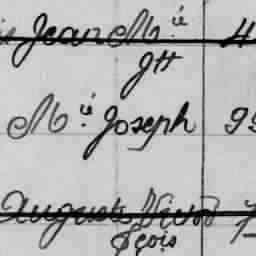 Jean M.ie 4
Jh
M.ie Joseph 99
Auguste Victor 7
Fçois